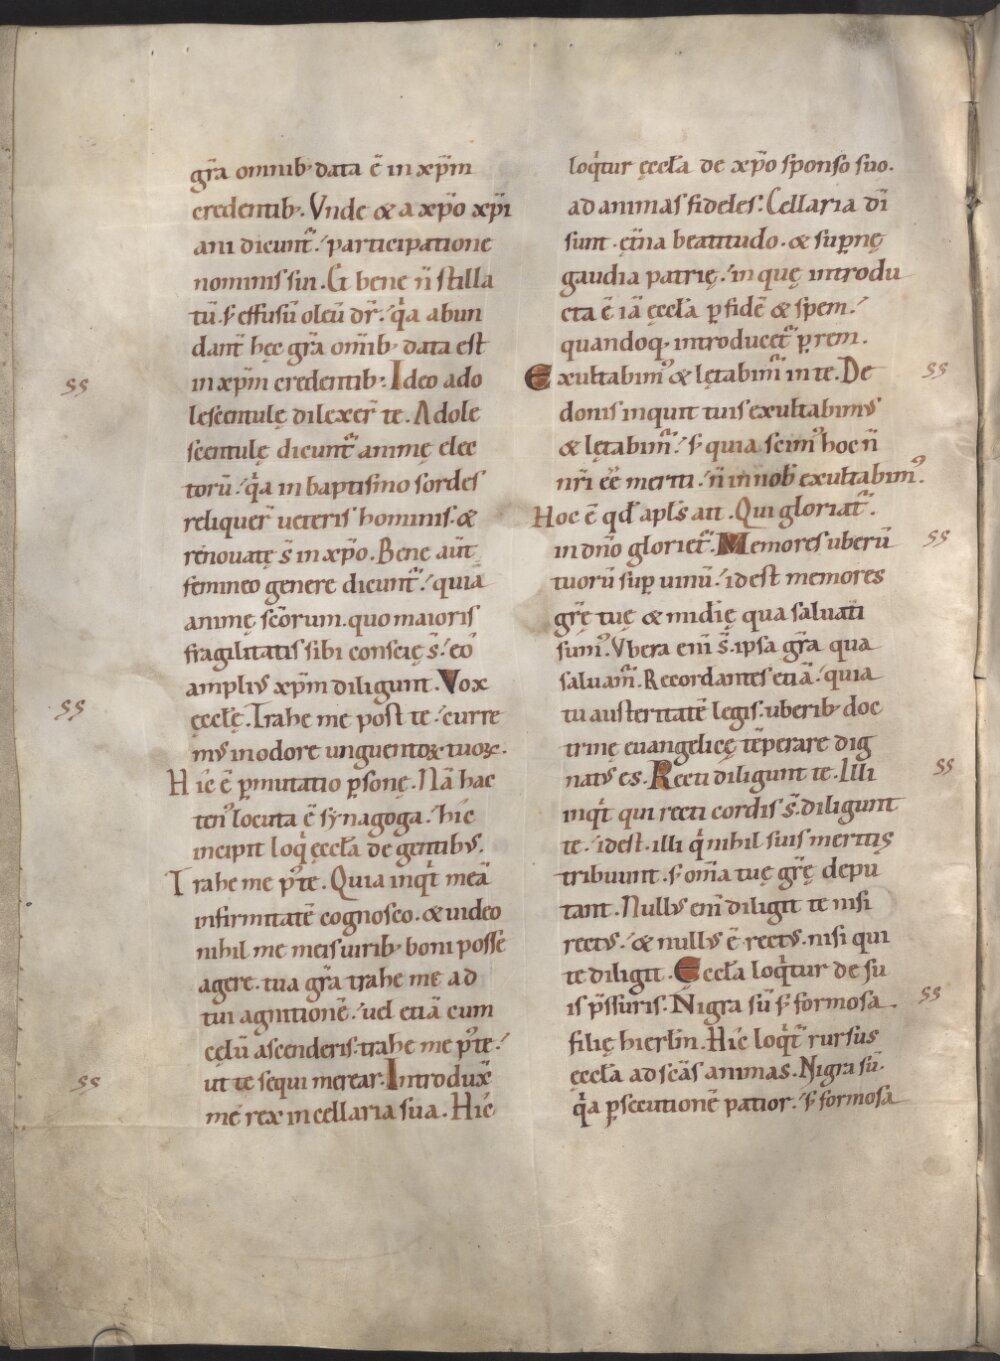 gr̃a omnib; data ẽ in xp̃m
credentib;. Vnde & a xp̃o xp̃i
ani dicunt᷑. participatione
nominis sui. Et bene ñ stilla
tũ. s; effusũ oleũ dr̃. qͥa abun
dant̃ hęc gr̃a om̃ib; data est
in xp̃m credentib;. Ideo ado
lescentulę dilexer̃ te. Adole
scentulę dicunt᷑ animę elec
torũ. qͥa in baptismo sordes
reliquer̃ ueteris hominis. &
renouatę s̃ in xp̃o. Bene aũt
femineo genere dicunt᷑. quia
animę sc̃orum. quo maioris
fragilitatis sibi conscię s̃. eo
ampliꝰ xp̃m diligunt. Vox
ęcclę. Trahe me post te. curre
mꝰ in odore unguentoꝝ tuoꝝ.
Hic ẽ ꝑmutatio ꝑsonę. Nã hac
tenꝰ locuta ẽ synagoga. hic
incipit loqͥ ęccła de gentibꝰ.
Trahe me p̾ te. Quia inqͥt meã
infirmitatẽ cognosco. & uideo
nihil me meis uirib; boni posse
agere. tua gr̃a trahe me ad
tui agnitionẽ. uel etiã cum
cęlũ ascenderis. trahe me p̾ te.
ut te sequi merear. Introdux̃
me rex in cellaria sua. Hic
loqͥtur ęccła de xp̃o sponso suo.
ad animas fideles. Cellaria dĩ
sunt. ęt̃na beatitudo. & suꝑnę
gaudia patrię. in quę introdu
cta ẽ iã ęccła ꝑ fidẽ & spem.
quandoq; introducet᷑ ꝑ rem.
Exultabimꝰ & lętabim᷑ in te. De
donis inquit tuis exultabimꝰ
& lętabim᷑. s; quia scimꝰ hoc ñ
nr̃i eẽ meriti. ñ in nob̃ exultabimꝰ.
Hoc ẽ qđ apls̃ ait. Qui gloriat᷑.
in dño gloriet᷑. Memores uberũ
tuorũ suꝑ uinũ. id est memores
gr̃ę tuę & mĩdię qua saluati
sumꝰ. Vbera enĩ s̃. ipsa gr̃a qua
saluam᷑. Recordantes etiã. quia
tu austeritatẽ legis. uberib; doc
trinę euangelicę tẽperare dig
natꝰ es. Recti diligunt te. Illi
inqͥt qui recti cordis s̃. diligunt
te. id est. illi qͥ nihil suis meritis
tribuunt. s; om̃a tuę gr̃ę depu
tant. Nullꝰ enĩ diligit te nisi
rectꝰ. & nullꝰ ẽ rectꝰ. nisi qui
te diligit. Ęccła loqͥtur de su
is p̃ssuris. Nigra sũ s; formosa.
filię hierłm. Hic loqͥt᷑ rursus
ęccła ad sc̃as animas. Nigra sũ.
qͥa ꝑsecutionẽ patior. s; formosa
ss
ss
ss
ss
ss
ss
ss